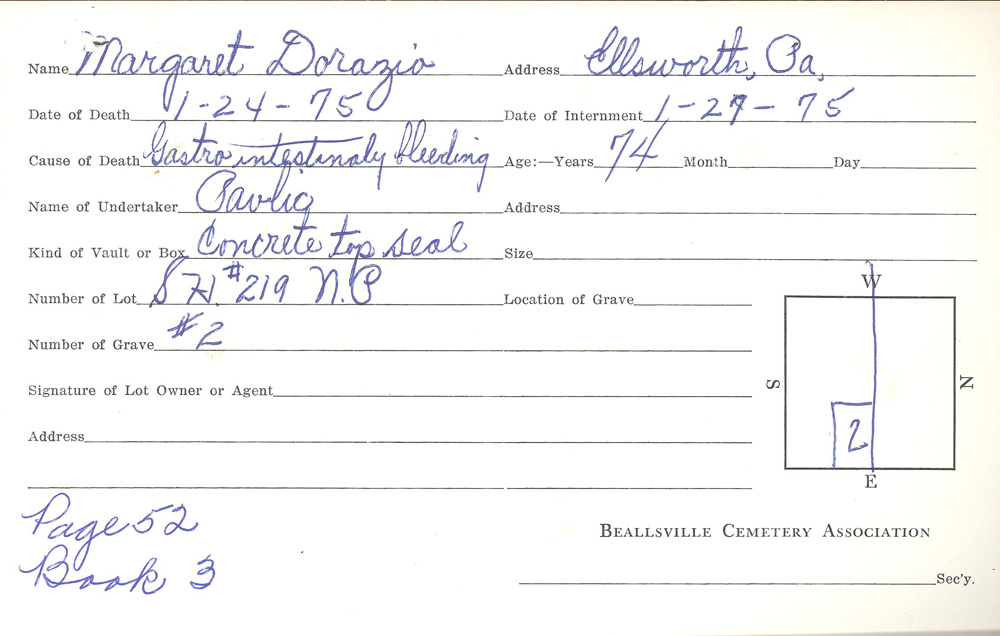 Name Margaret Dorazio Address Ellsworth, Pa,
Date of Death 1-24-75 Date of Internment 1-27-75
Cause of Death Gastro intestinaly bleeding Age:—Years 74 Month Day
Name of Undertaker Pavlig Address
Kind of Vault or Box Concrete top seal Size
Number of Lot S H. #219 N.P Location of Grave
Number of Grave #2
Signature of Lot Owner or Agent
Address
W
S
N
2
E
Page 52
Book 3
BEALLSVILLE CEMETERY ASSOCIATION
Sec'y.